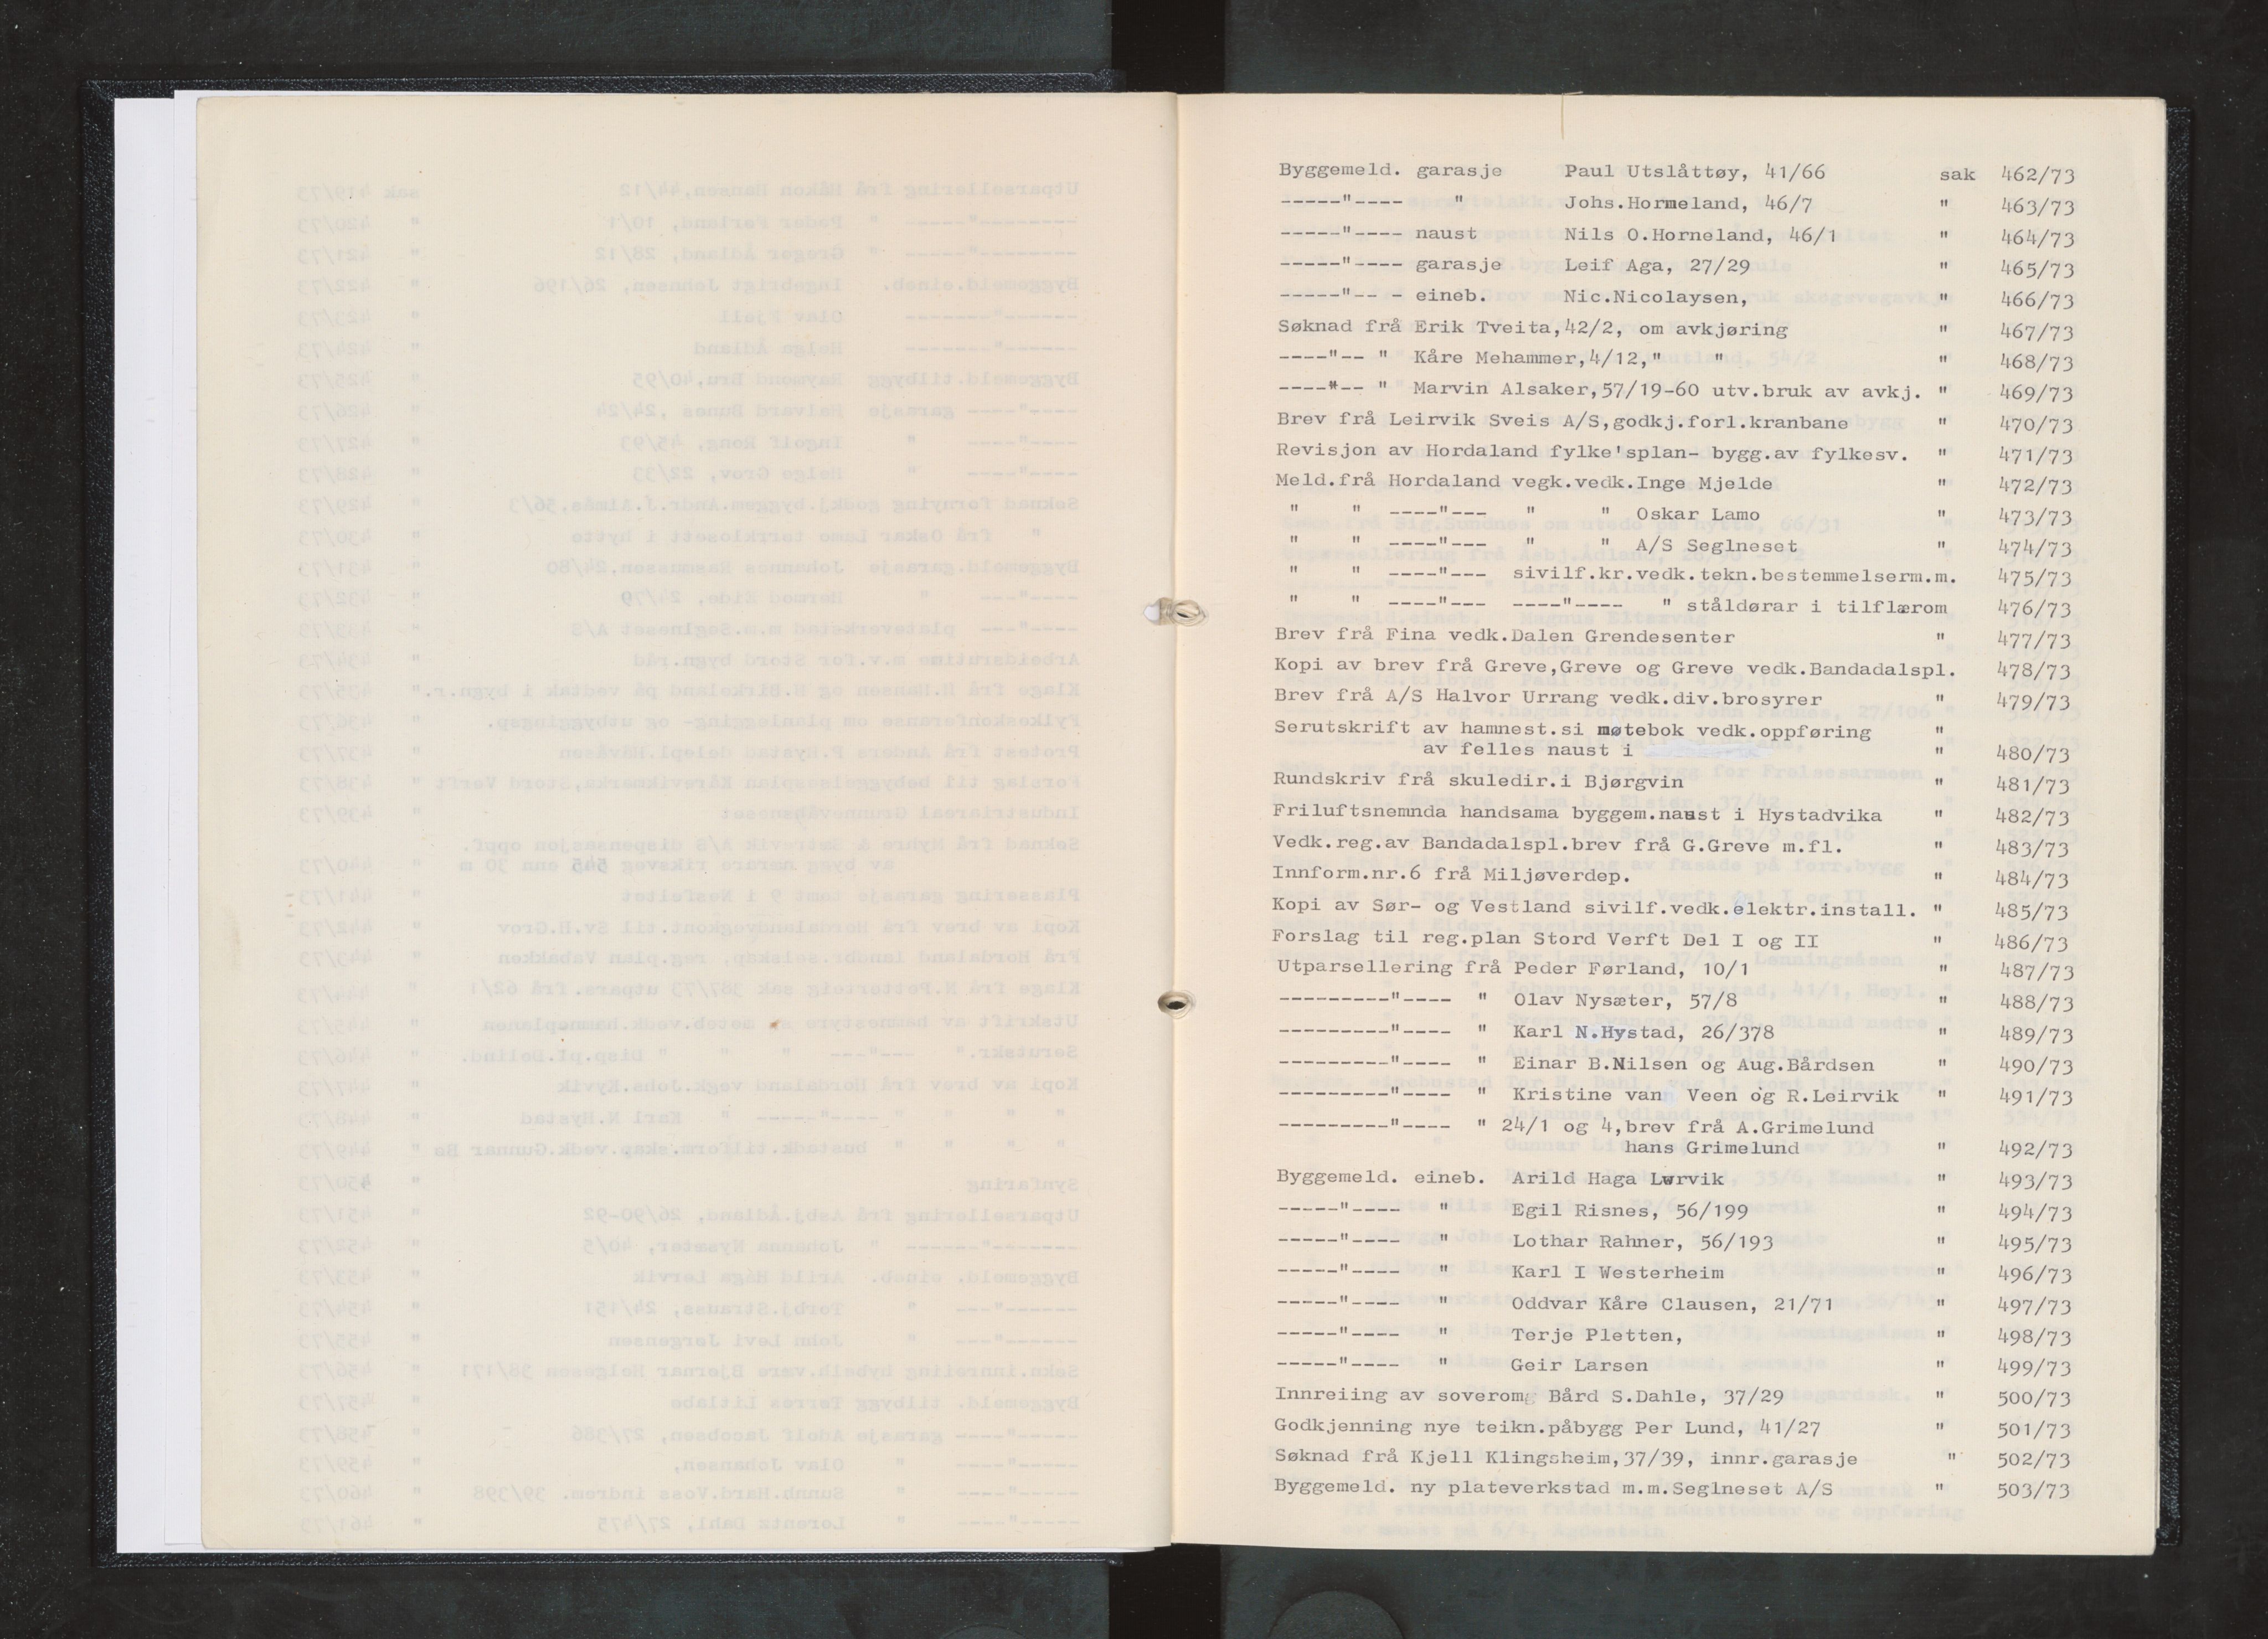 Byggemeld. garasje Paul Utslåttøy, 41/66 sak 462/73
-----"---- " Johs.Hormeland, 46/7 " 463/73
-----"---- naust Nils O.Horneland, 46/1 " 464/73
-----"---- garasje Leif Aga, 27/29 " 465/73
-----"-- - eineb. Nic.Nicolaysen, " 466/73
Søknad frå Erik Tveita,42/2, om avkjøring " 467/73
----"-- " Kåre Mehammer,4/12," " " 468/73
----"-- " Marvin Alsaker,57/19-60 utv.bruk av avkj. " 469/73
Brev frå Leirvik Sveis A/S,godkj.forl.kranbane " 470/73
Revisjon av Hordaland fylke'splan- bygg.av fylkesv. " 471/73
Meld.frå Hordaland vegk.vedk.Inge Mjelde " 472/73
" " ----"--- " " Oskar Lamo " 473/73
" " ----"--- " " A/S Seglneset " 474/73
" " ----"--- sivilf.kr.vedk.tekn.bestemmelserm.m. 475/73
" " ----"--- ----"---- " ståldørar i tilflærom 476/73
Brev frå Fina vedk.Dalen Grendesenter " 477/73
Kopi av brev frå Greve,Greve og Greve vedk.Bandadalspl. 478/73
Brev frå A/S Halvor Urrang vedk.div.brosyrer " 479/73
Serutskrift av hamnest.si møtebok vedk.oppføring "
av felles naust i " 480/73
Rundskriv frå skuledir.i Bjørgvin " 481/73
Friluftsnemnda handsama byggem.naust i Hystadvika " 482/73
Vedk.reg.av Bandadalspl.brev frå G.Greve m.fl. " 483/73
Innform.nr.6 frå Miljøverdep. " 484/73
Kopi av Sør- og Vestland sivilf.vedk.elektr.install. " 485/73
Forslag til reg.plan Stord Verft Del I og II " 486/73
Utparsellering frå Peder Førland, 10/1 " 487/73
---------"---- " Olav Nysæter, 57/8 " 488/73
---------"---- " Karl N.Hystad, 26/378 " 489/73
---------"---- " Einar B.Nilsen og Aug.Bårdsen " 490/73
---------"---- " Kristine van Veen og R.Leirvik " 491/73
---------"---- " 24/1 og 4,brev frå A.Grimelund
hans Grimelund " 492/73
Byggemeld. eineb. Arild Haga Lørvik " 493/73
-----"---- " Egil Risnes, 56/199 " 494/73
-----"---- " Lothar Rahner, 56/193 " 495/73
-----"---- " Karl I Westerheim " 496/73
-----"---- " Oddvar Kåre Clausen, 21/71 " 497/73
-----"---- " Terje Pletten, " 498/73
-----"---- " Geir Larsen " 499/73
Innreiing av soverom Bård S.Dahle, 37/29 " 500/73
Godkjenning nye teikn.påbygg Per Lund, 41/27 " 501/73
Søknad frå Kjell Klingsheim,37/39, innr.garasje " 502/73
Byggemeld. ny plateverkstad m.m.Seglneset A/S " 503/73